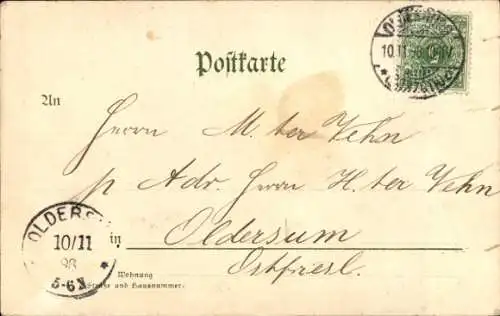 Postkarte
An
Herrn M. ter Vehn
p. Adr. Herrn H. ter Vehn
in Oldersum
Ostfriesl.
Wohnung
Straße und Hausnummer.
OLDERS
10/11
98
5-6N
10.11.98